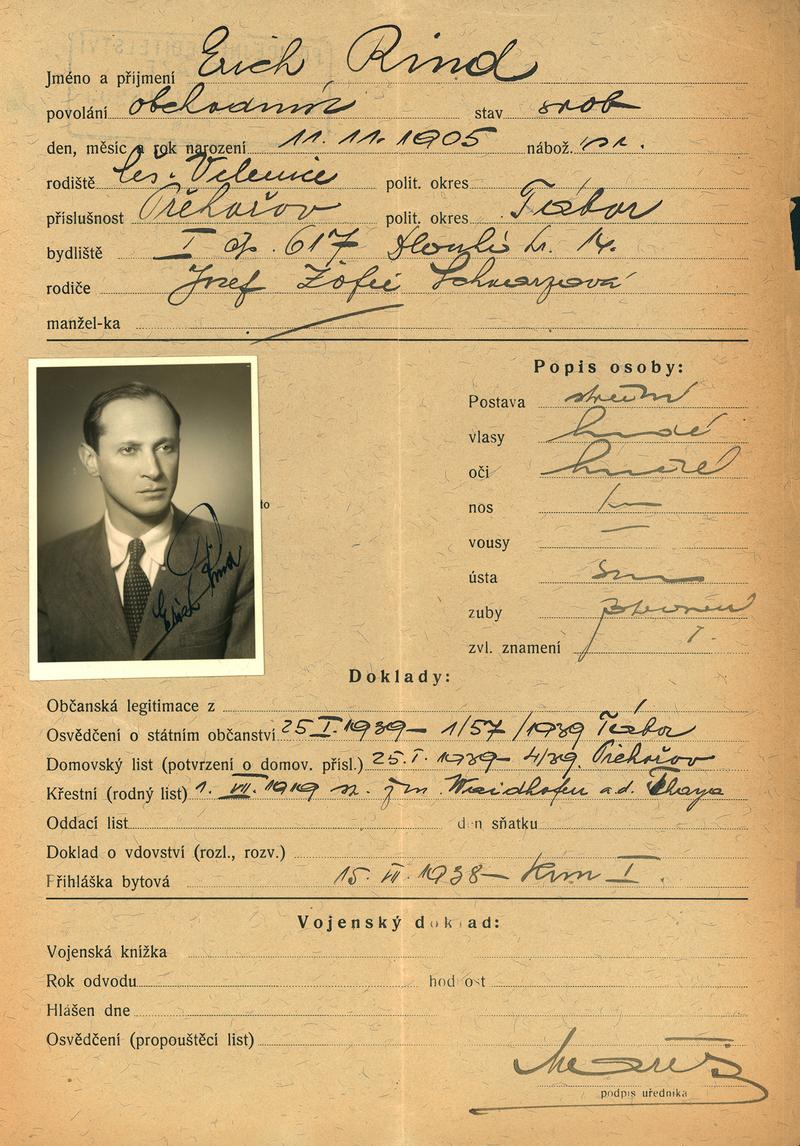 Jméno a příjmení Erich Rind
povolání obchodník stav svob
den, měsíc a rok narození 11. 11. 1905 nábož.
rodiště Čes. Velenice polit. okres
příslušnost Přehořov polit. okres Tábor
bydliště I čp. 617 Dlouhá tř. 14.
rodiče Josef Žofie Schwarzová
manžel-ka
Popis osoby:
Postava střední
vlasy hnědé
oči hnědé
nos
vousy —
ústa
zuby
zvl. znamení
to
Erich Rind
Doklady:
Občanská legitimace z
Osvědčení o státním občanství 25 I. 1939 – 1/57 /1939 Tábor
Domovský list (potvrzení o domov. přísl.) 25. I. 1939 – 4/39. Přehořov
Křestní (rodný list) 1. VII. 1919 Waidhofen a.d. Thaya
Oddací list den sňatku
Doklad o vdovství (rozl., rozv.)
Přihláška bytová 15. 1938 – I.
Vojenský doklad:
Vojenská knížka
Rok odvodu hodnost
Hlášen dne
Osvědčení (propouštěcí list)
podpis uředníka